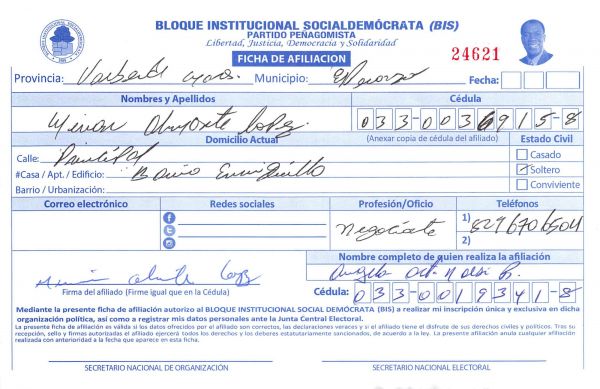 BLOQUE INSTITUCIONAL SOCIALDEMÓCRATA (BIS)
PARTIDO PEÑAGOMISTA
Libertad, Justicia, Democracia y Solidaridad
FICHA DE AFILIACION
24621
Provincia: Municipio: Fecha:
Nombres y Apellidos Cédula
Lopez 033-0036915-8
Domicilio Actual (Anexar copia de cédula del afiliado) Estado Civil
Calle: Principal
Casado
#Casa / Apt. / Edificio: Barrio Enriquillo
Soltero
Barrio / Urbanización:
Conviviente
Correo electrónico Redes sociales Profesión/Oficio Teléfonos
Negociante
1) 829 670 6504
2)
Nombre completo de quien realiza la afiliación
Angela
Firma del afiliado (Firme igual que en la Cédula)
Cédula: 033-0019341-8
Mediante la presente ficha de afiliación autorizo al BLOQUE INSTITUCIONAL SOCIAL DEMÓCRATA (BIS) a realizar mi inscripción única y exclusiva en dicha
organización política, así como a registrar mis datos personales ante la Junta Central Electoral.
La presente ficha de afiliación es válida si los datos ofrecidos por el afiliado son correctos, las declaraciones veraces y si el afiliado tiene el disfrute de sus derechos civiles y políticos. Tras su
recepción, sello y firmas autorizadas el afiliado ejercerá todos los derechos y los deberes estatutariamente sancionados, de acuerdo a la ley. La presente afiliación anula cualquier afiliación
realizada con anterioridad a la fecha que aparece en esta ficha.
SECRETARIO NACIONAL DE ORGANIZACIÓN
SECRETARIO NACIONAL ELECTORAL